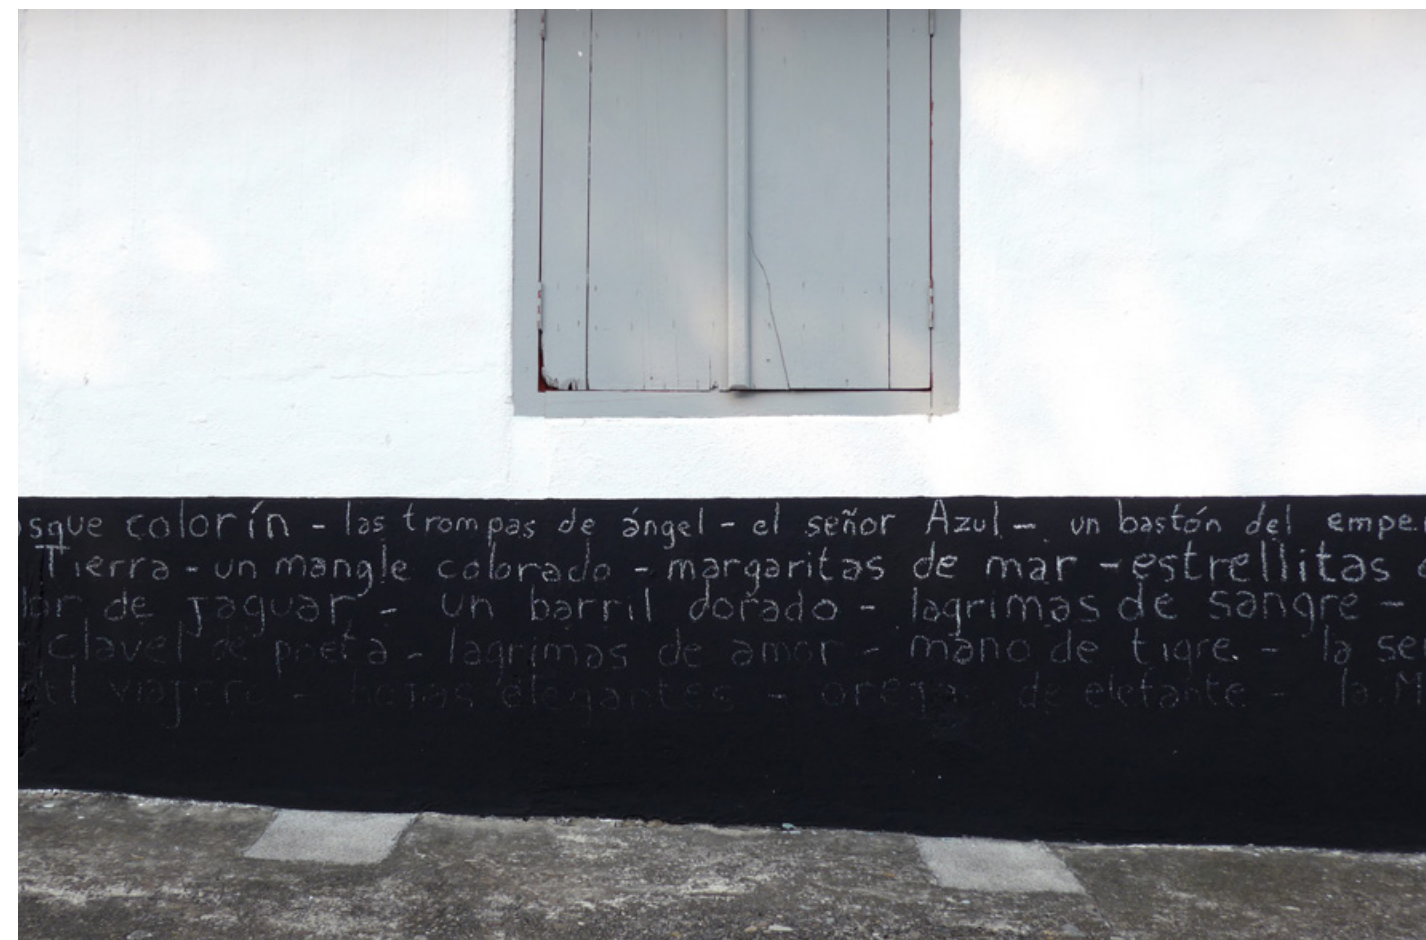 osque colorín - las trompas de ángel - el señor Azul - un bastón del empe
Tierra - un mangle colorado - margaritas de mar - estrellitas
de Jaguar - un barril dorado - lagrimas de sangre -
- clavel de poeta - lagrimas de amor - mano de tigre - la se
del viajero - hojas elegantes - orejas de elefante - la M